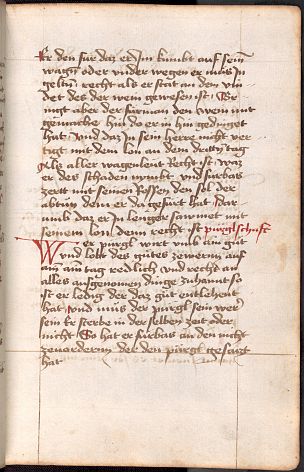 Er den für daz er Im kumbt auf sein
wagn oder vnder wegen er mus In
gestin recht als er stat an dem vin
det des der wein gewesen ist Brin
ngt aber der fürman den wein mit
gewarhe hin do er in hin gedinget
hat Vnd daz In sein herre nicht ver
tigt mit dem lon an dem dritn tag
als aller wagenleut Recht ist waz
er des schaden nymbt vnd fürbas
zert mit seinen Rossen den sol der
abtůn dem er da gefürt hat Dar
umb daz er In lenger sawmet mit
seinem lon denn recht ist pürglschaft
Wer pürgl wirt vmb ain gůt
vnd lobt des gůtes ze wern auf
ain tag redlich vnd recht an
alles ausgenomen dinge zuhannt so
ist er ledig der daz gůt entlehent
hat vnd mus der pürgl sein wer
sein Er sterbe in der selben zeit oder
nicht So hat er fürbas an den nicht
zeuordern der den pürgl gesatzt
hat